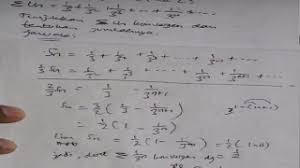 Σ Un = 1/3 + 1/3² + 1/3³ + ... + 1/3ⁿ + ...
Tunjukkan Σ Un konvergen dan
tentukan jumlahnya.
Jawab:
Sn = 1/3 + 1/3² + 1/3³ + ... + 1/3ⁿ
1/3 Sn = 1/3² + 1/3³ + ... + 1/3ⁿ + 1/3ⁿ⁺¹
2/3 Sn = 1/3 - 1/3ⁿ⁺¹
Sn = 3/2 (1/3 - 1/3ⁿ⁺¹)
= 1/2 (1 - 1/3ⁿ)
lim Sn = 1/2 (1 - 1/3ⁿ) = 1/2 (1-0)
Jadi, deret Σ 1/3ⁿ konvergen dg = 1/2